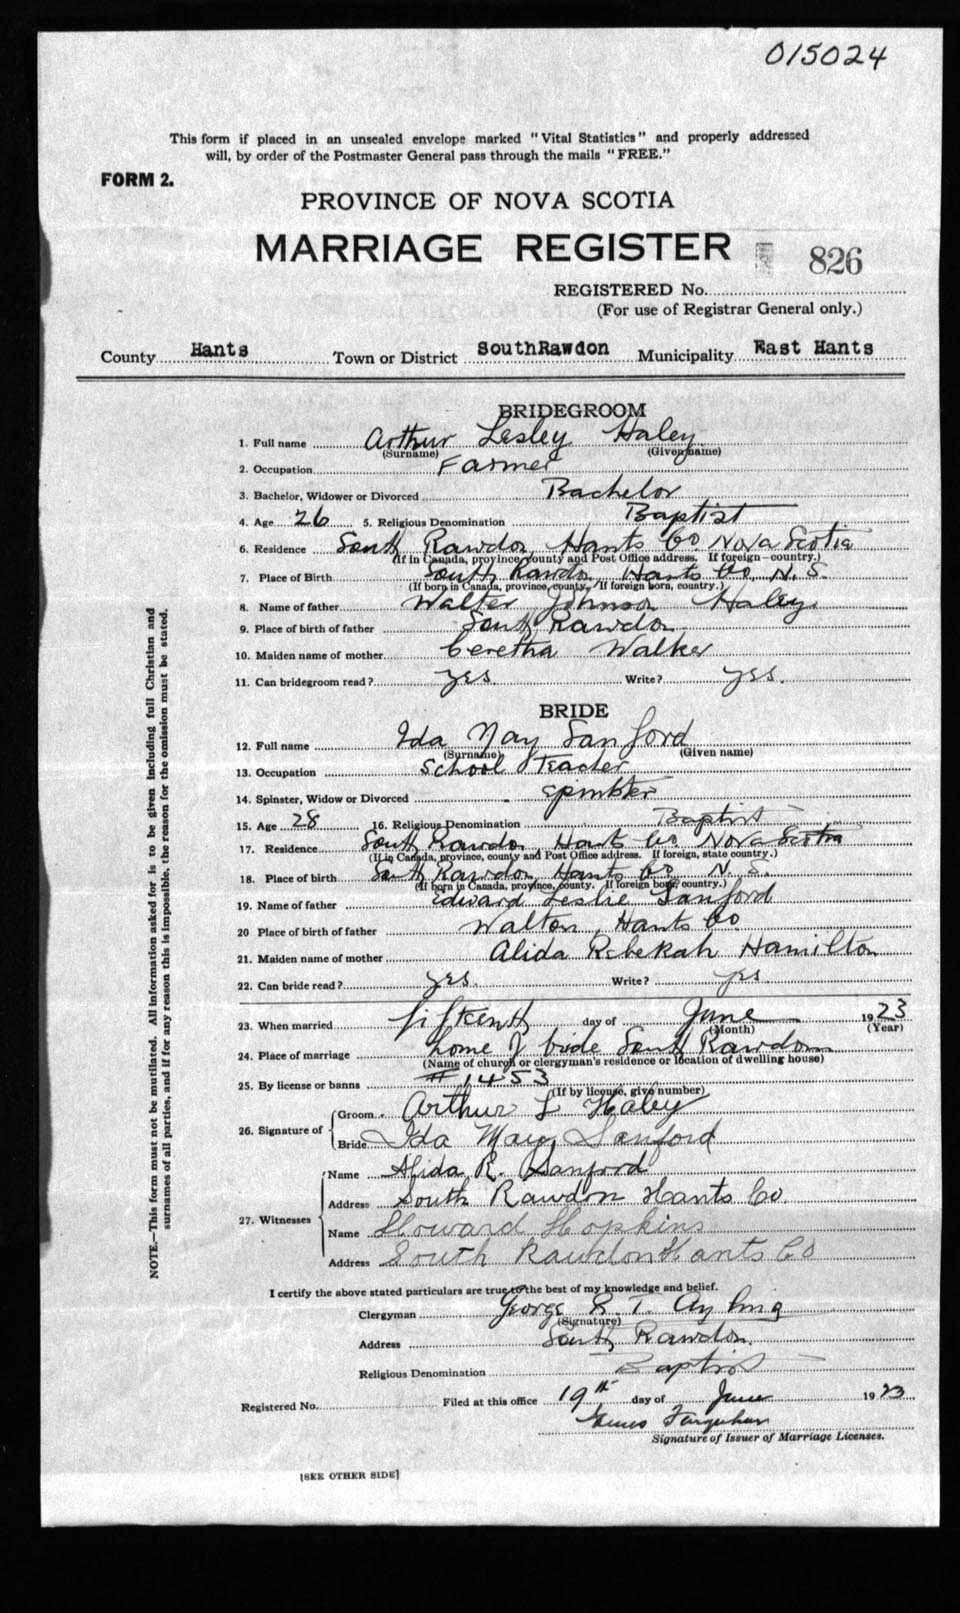 015024
This form if placed in an unsealed envelope marked "Vital Statistics" and properly addressed
will, by order of the Postmaster General pass through the mails "FREE."
FORM 2.
PROVINCE OF NOVA SCOTIA
MARRIAGE REGISTER 826
REGISTERED No.
(For use of Registrar General only.)
County Hants Town or District SouthRawdon Municipality East Hants
BRIDEGROOM
1. Full name Arthur Lesley Haley
(Surname) (Given name)
2. Occupation Farmer
3. Bachelor, Widower or Divorced Bachelor
4. Age 26 5. Religious Denomination Baptist
6. Residence South Rawdon, Hants Co Nova Scotia
(If in Canada, province, county and Post Office address. If foreign—country.)
7. Place of Birth South Rawdon, Hants Co. N. S.
(If born in Canada, province, county. If foreign born, country.)
8. Name of father Walter Johnson Haley
9. Place of birth of father South Rawdon
10. Maiden name of mother Ceretha Walker
11. Can bridegroom read? yes. Write? yes.
BRIDE
12. Full name Ida May Sanford
(Surname) (Given name)
13. Occupation School Teacher
14. Spinster, Widow or Divorced Spinster
15. Age 28 16. Religious Denomination Baptist
17. Residence South Rawdon, Hants Co Nova Scotia
(If in Canada, province, county and Post Office address. If foreign, state country.)
18. Place of birth South Rawdon, Hants Co N. S.
(If born in Canada, province, county. If foreign born, country.)
19. Name of father Edward Leslie Sanford
20 Place of birth of father Walton, Hants Co
21. Maiden name of mother Alida Rebekah Hamilton
22. Can bride read? yes. Write? yes.
23. When married fifteenth day of June 1923
(Month) (Year)
24. Place of marriage home of bride South Rawdon
(Name of church or clergyman's residence or location of dwelling house)
25. By license or banns #1453
(If by license, give number)
26. Signature of Groom Arthur L Haley
Bride Ida May Sanford
27. Witnesses Name Alida R. Sanford
Address South Rawdon Hants Co.
Name Howard Hopkins
Address South Rawdon Hants Co
I certify the above stated particulars are true to the best of my knowledge and belief.
Clergyman George R. T. Ayling
(Signature)
Address South Rawdon.
Religious Denomination Baptist
Registered No. Filed at this office 19th day of June 1923
James Farquhar
Signature of Issuer of Marriage Licenses.
[SEE OTHER SIDE]
NOTE.—This form must not be mutilated. All information asked for is to be given including full Christian and
surnames of all parties, and if for any reason this is impossible, the reason for the omission must be stated.